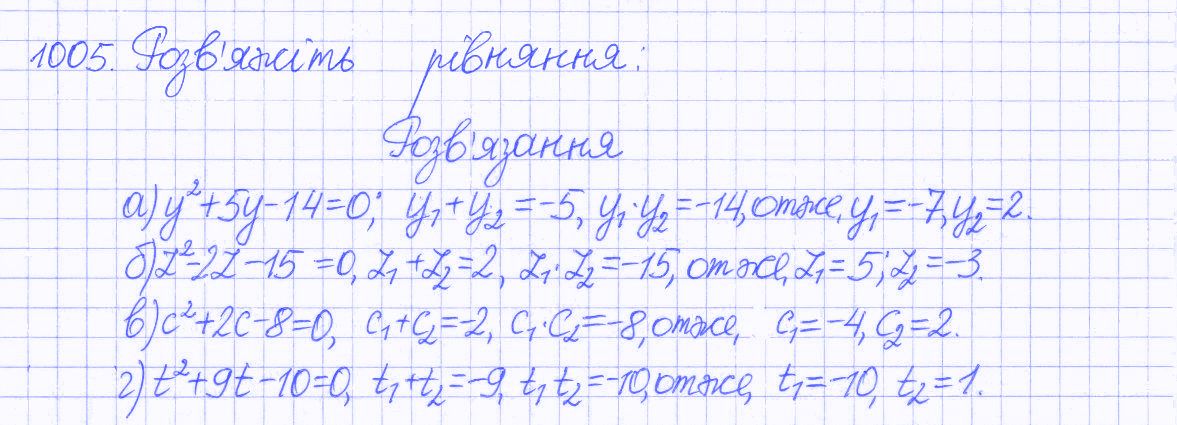 1005. Розв'яжіть рівняння:
Розв'язання
а) y²+5y-14=0; y₁+y₂=-5, y₁·y₂=-14, отже, y₁=-7, y₂=2.
б) z²-2z-15=0, z₁+z₂=2, z₁·z₂=-15, отже, z₁=5; z₂=-3.
в) c²+2c-8=0, c₁+c₂=-2, c₁·c₂=-8, отже, c₁=-4, c₂=2.
г) t²+9t-10=0, t₁+t₂=-9, t₁ t₂=-10, отже, t₁=-10, t₂=1.